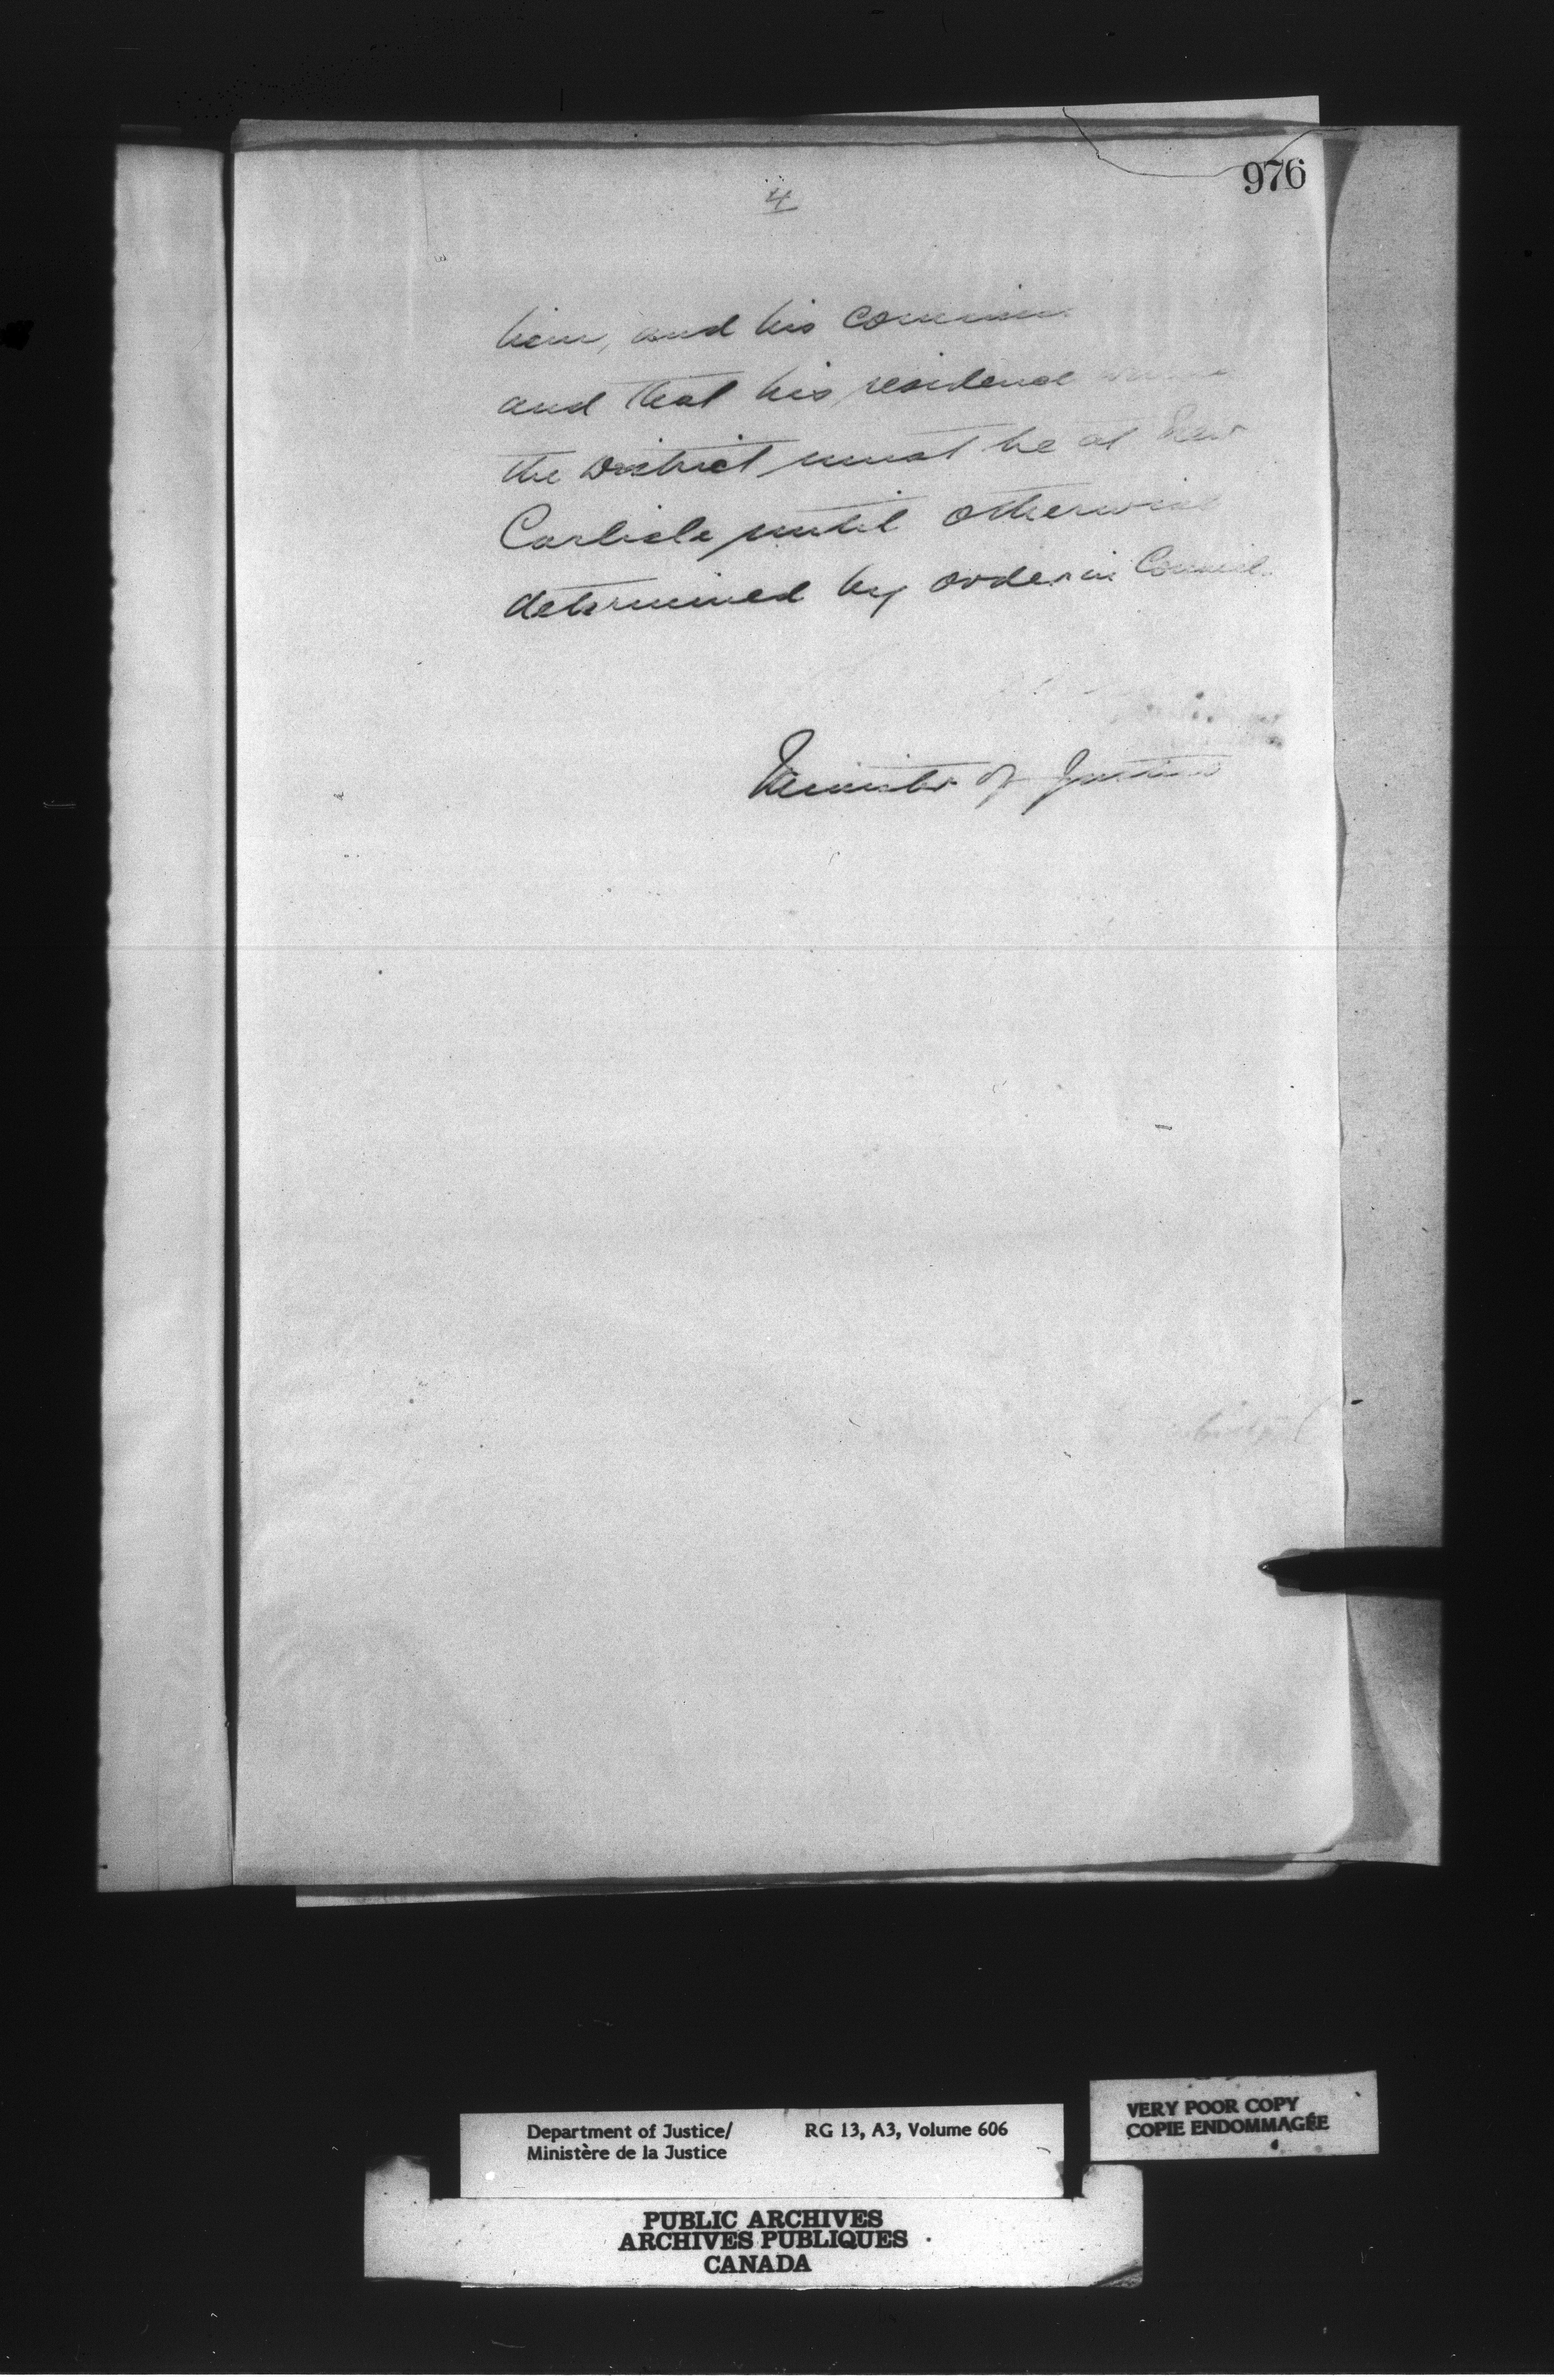 976
4
him, and his
and that his residence
the District must be at New
Carlisle until otherwise
determined by order in Council.
Minister of Justice
Department of Justice/ RG 13, A3, Volume 606
Ministère de la Justice
VERY POOR COPY
COPIE ENDOMMAGÉE
PUBLIC ARCHIVES
ARCHIVES PUBLIQUES
CANADA